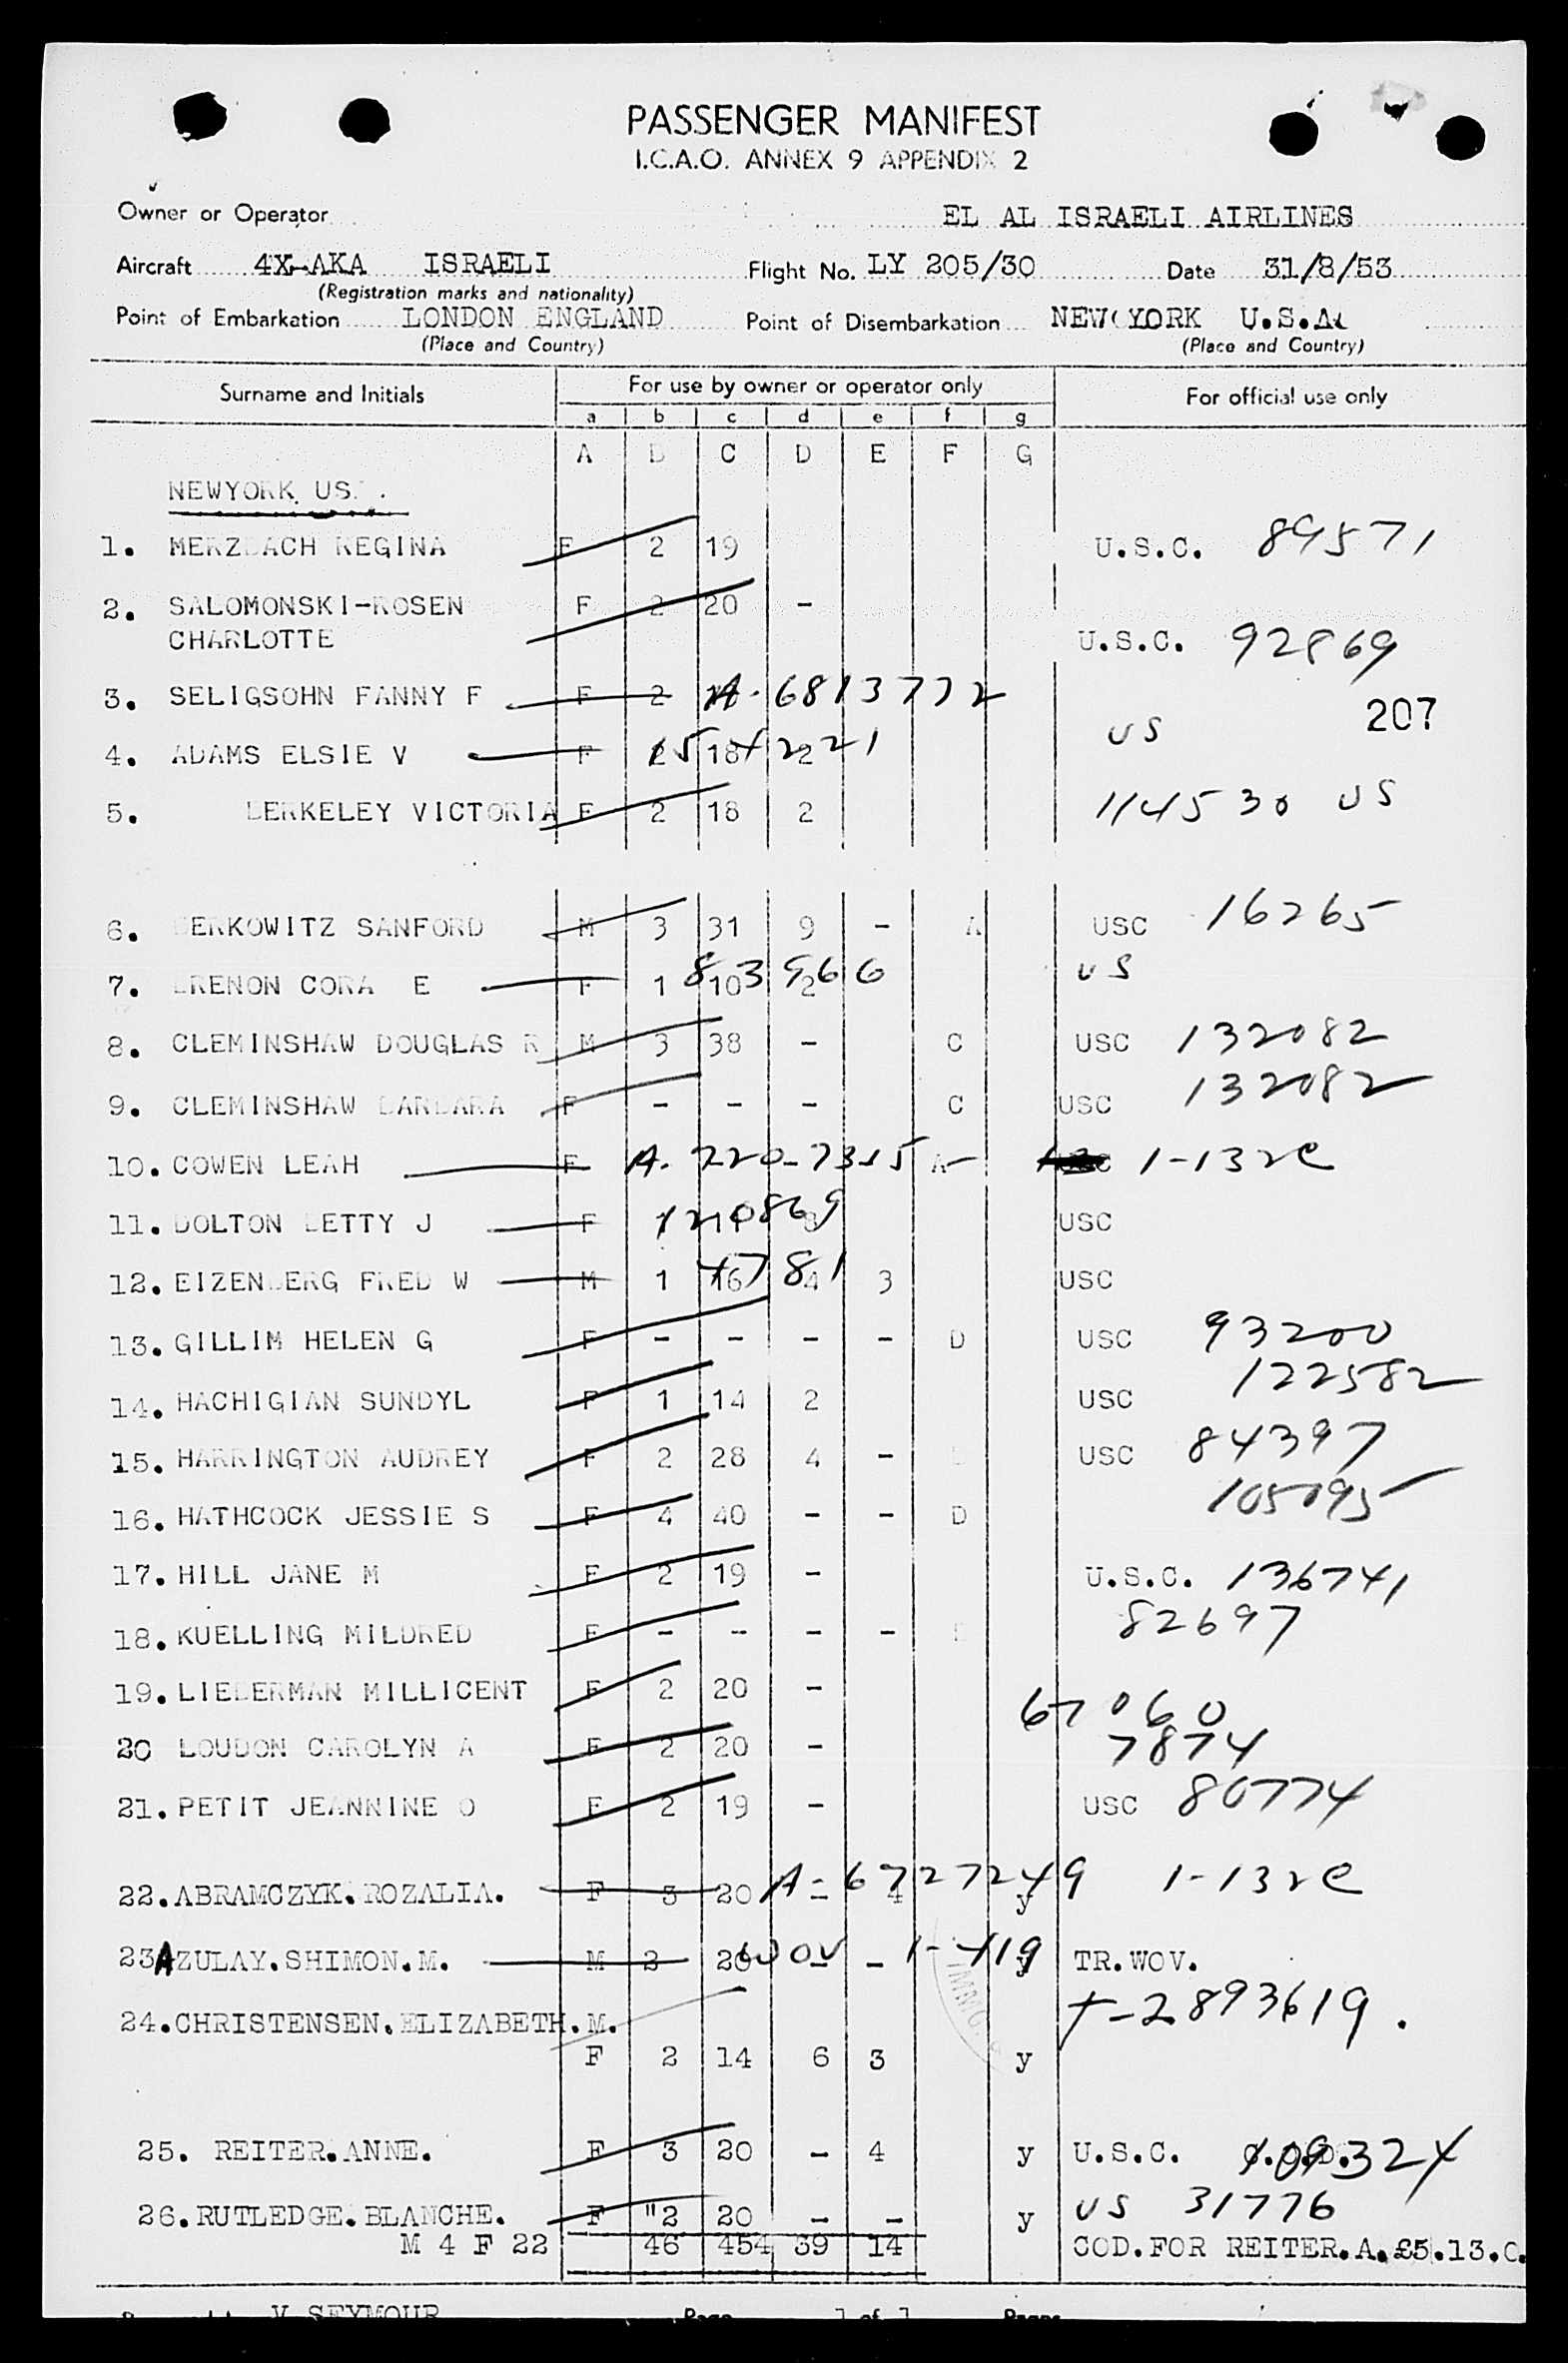 PASSENGER MANIFEST
I.C.A.O. ANNEX 9 APPENDIX 2
Owner or Operator EL AL ISRAELI AIRLINES
Aircraft 4X-AKA ISRAELI Flight No. LY 205/30 Date 31/8/53
(Registration marks and nationality)
Point of Embarkation LONDON ENGLAND Point of Disembarkation NEW YORK U.S.A
(Place and Country) (Place and Country)
Surname and Initials For use by owner or operator only For official use only
a b c d e f g
A B C D E F G
NEWYORK US.
1. MERZBACH REGINA F 2 19 U.S.C. 89571
2. SALOMONSKI-ROSEN F 2 20 -
CHARLOTTE U.S.C. 92869
3. SELIGSOHN FANNY F F 2 A-6813772
207
4. ADAMS ELSIE V F 2 18 2 154221 US
5. BERKELEY VICTORIA F 2 18 2 114530 US
6. BERKOWITZ SANFORD M 3 31 9 - A USC 16265
7. BRENON CORA E F 1 10 2 83966 US
8. CLEMINSHAW DOUGLAS R M 3 38 - C USC 132082
9. CLEMINSHAW BARBARA F - - - C USC 132082
10. COWEN LEAH F A-220-7315 A- 1-132C
11. DOLTON BETTY J F 120869 USC
12. EIZENBERG FRED W M 1 16 4 3 4781 USC
13. GILLIM HELEN G F - - - - D USC 93200
14. HACHIGIAN SUNDYL F 1 14 2 USC 122582
15. HARRINGTON AUDREY F 2 28 4 - USC 84397
16. HATHCOCK JESSIE S F 4 40 - - D 105095
17. HILL JANE M F 2 19 - U.S.C. 136741
18. KUELLING MILDRED F - - - - 82697
19. LIEBERMAN MILLICENT F 2 20 - 67060
20 LOUDON CAROLYN A F 2 20 - 7874
21. PETIT JEANNINE O F 2 19 - USC 80774
22. ABRAMCZYK.ROZALIA. F 3 20 - 4 y A-6727249 1-132C
23 AZULAY.SHIMON.M. M 2 20 - - y WOV 1-419 TR.WOV.
24. CHRISTENSEN.ELIZABETH.M. T-2893619.
F 2 14 6 3 y
25. REITER.ANNE. F 3 20 - 4 y U.S.C. 109324
26. RUTLEDGE.BLANCHE. F "2 20 - - y US 31776
M 4 F 22 46 454 39 14 COD.FOR REITER.A.£5.13.0.
V SEYMOUR Page 1 of 1 Pages